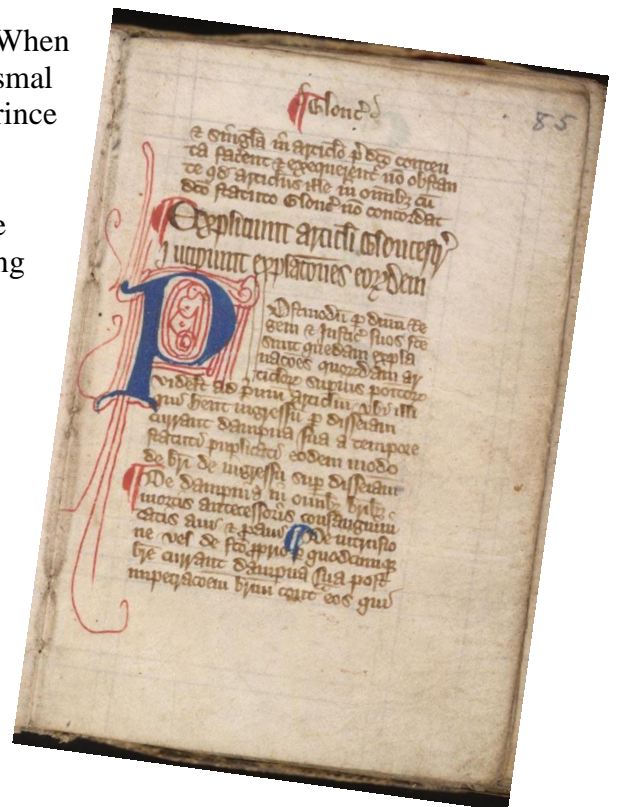 When
smal
rince
e
ng
85
Glouc
& singla in articlo p dco conten
ta facerent & exequerent no obstan
te qd articlus ille in omnibz cu
dco statuto Glouc no concordat
Expliciunt articli Gloucestr
Incipiunt explacones eorzdem
Postmodu p dnm Re
gem & Justic suos fce
sunt quedam expla
nacoes quorzdam ar
ticlorz supius positorz
videlt ad primu articlum vbi illi
qui hent ingressu p disseisam
currant dampna sua a tempore
statuti puplicati eodem modo
de bri de ingressu sup disseisam
De dampnis in omibz bribz
mortis antecessoris consanguini
tatis aui & paui De intrusio
ne vel de fco pprio p quodcumqz
bre currant dampna sua post
impetracoem brium contr eos qui